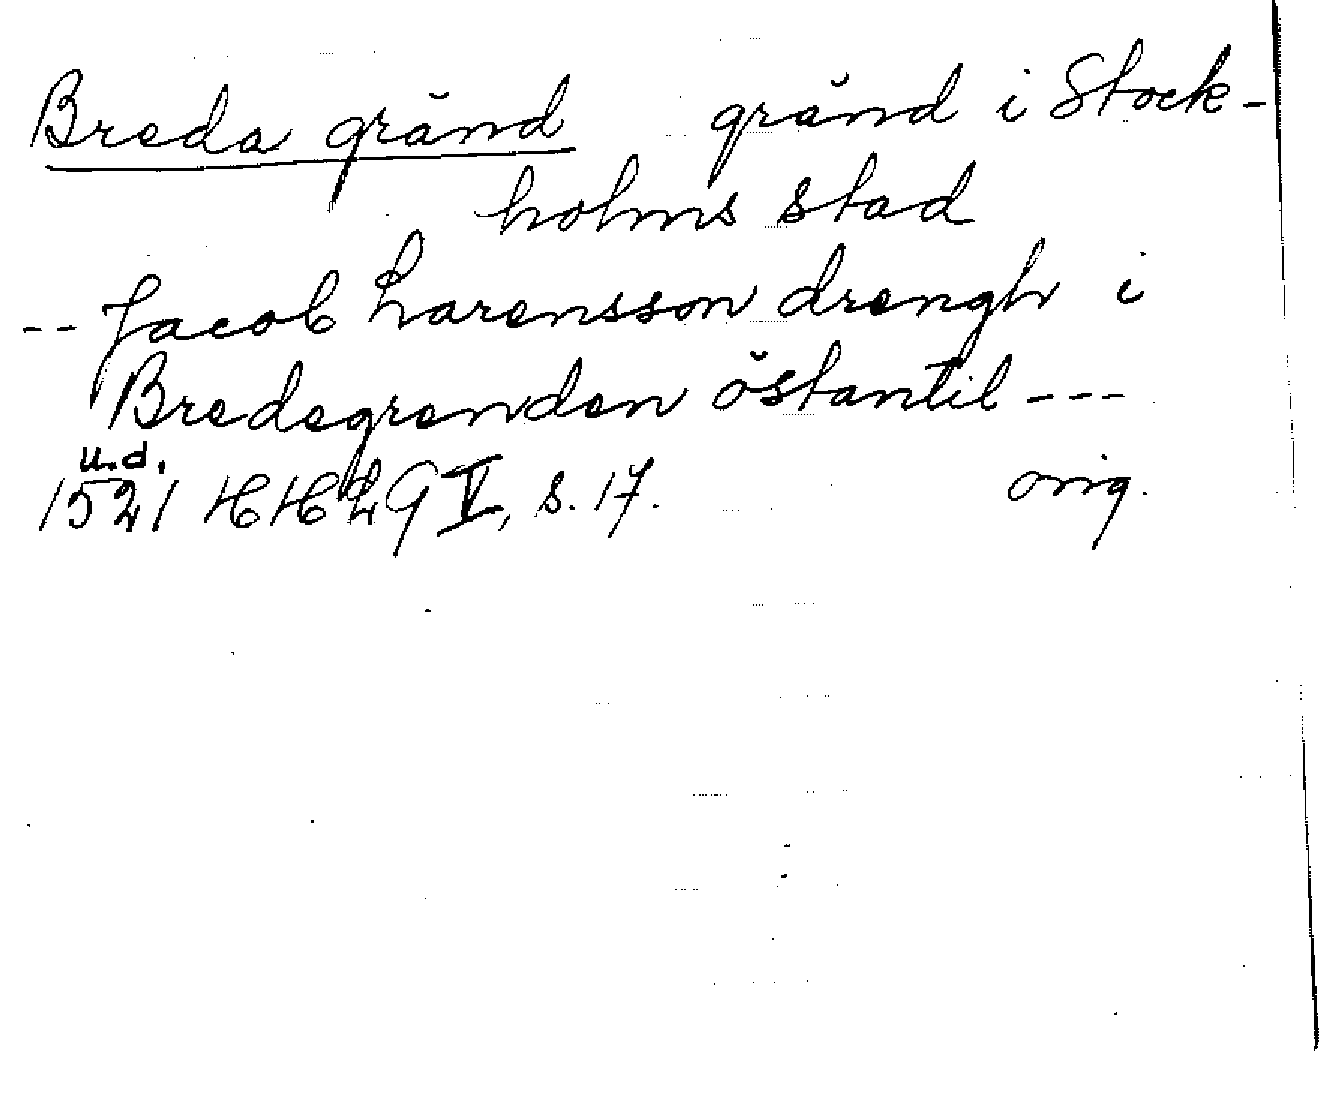 Breda gränd gränd i Stock-
holms stad
-- Jacob Larensson drengh i
Bredegrenden östantil ---
u.d.
1521 HHLQ V, s. 17. orig.